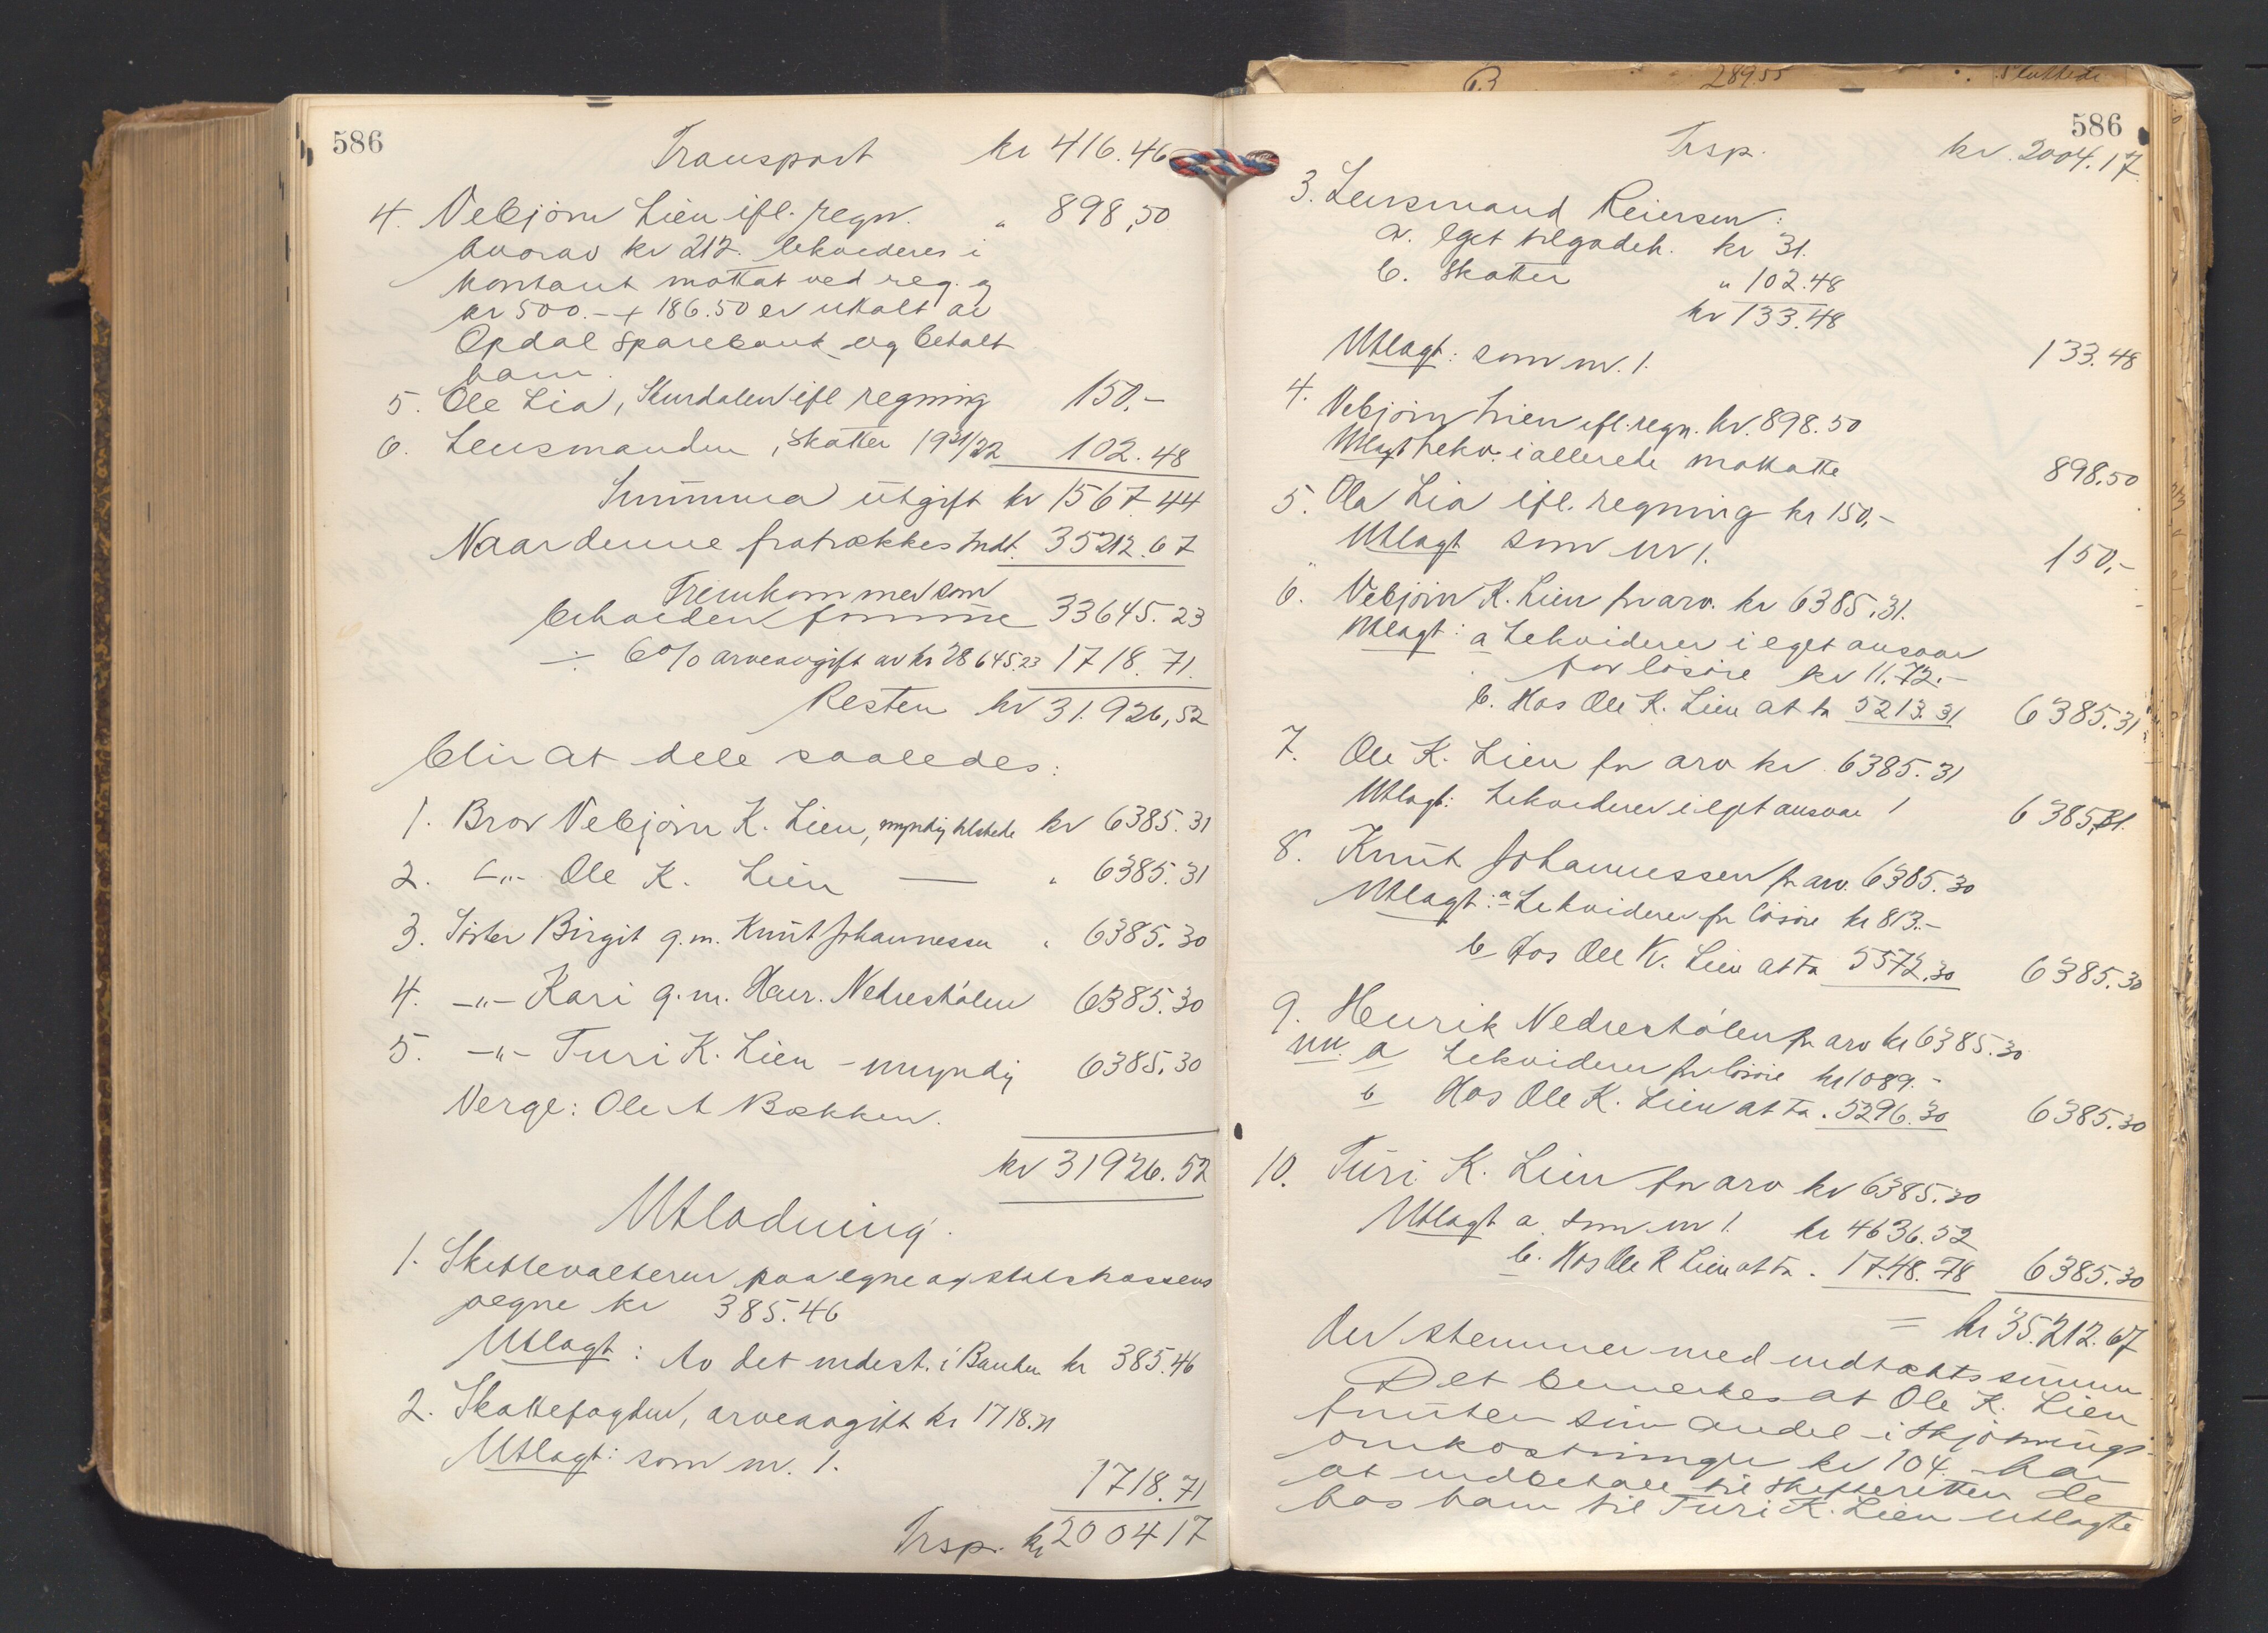 586
Transport kr 416.46
4. Vebjörn Lien ifl. regn. " 898,50
hvorav kr 212. lekvideres i
kontant mottat ved reg. og
kr 500.- + 186.50 er uttalt av
Opdal Sparebank og betalt
ham.
5. Ole Lia, Skurdalen ifl regning 150,-
6. Lensmanden, skatter 1921/22 102.48
Summa utgift kr 1567.44
Naar denne fratrækkes Indt. 35212.67
Fremkommer som
beholden formue 33645.23
÷ 6% arveavgift av kr 28645.23 1718.71.
Resten kr 31.926,52
blir at dele saaledes:
1. Bror Vebjörn K. Lien, myndig tilstede kr 6385.31
2. -"- Ole K. Lien — " 6385.31
3. Söster Birgit g.m. Knut Johannessen " 6385.30
4. -"- Kari g.m. Henr. Nedrestölen 6385.30
5. -"- Turi K. Lien - umyndig 6385.30
Verge: Ole A Bækken.
kr 31926.52
Utlodning.
1. Skifteforvalteren paa egne og statskassens
vegne kr 385.46
Utlagt: Av det indest. i Banken kr 385.46
2. Skattefogden, arveavgift kr 1718.71
Utlagt: som nr. 1.
1718.71
Trsp. kr 2004 17
63 289.55 Sluttede
586
Trsp. kr. 2004.17
3. Lensmand Reiersen:
a. eget tilgodeh. kr 31.
b. Skatter " 102.48
kr 133.48
Utlagt: som nr. 1. 133.48
4. Vebjörn Lien ifl. regn. kr. 898.50
Utlagt lekv. i allerede mottatte 898.50
5. Ola Lia ifl. regning kr 150,-
Utlagt som nr 1. 150,-
6. Vebjörn K. Lien for arv. kr 6385.31.
Utlagt: a Lekviderer i eget ansvar
for lösöre kr 11.72.-
b. Hos Ole K. Lien at ta 5213.31 6385.31
7. Ole K. Lien for arv kr. 6385.31
Utlagt: Lekviderer i eget ansvar 6385.31.
8. Knut Johannessen for arv. 6385.30
Utlagt: a Lekviderer for lösöre kr 813.-
b Hos Ole K. Lien at ta 5572.30 6385.30
9. Henrik Nedrestölen for arv kr 6385.30
Utl. a Lekviderer for lösöre kr 1089.-
b Hos Ole K. Lien at ta . 5296.30 6385.30
10. Turi K. Lien for arv kr 6385.30
Utlagt a. som nr 1. kr 4636.52
b. Hos Ole K Lien at ta . 1748.78 6385.30
= kr 35.212.67
Der stemmer med indtægtssummen.
Det bemerkes at Ole K. Lien
foruten sin andel i skjötnings-
omkostninger kr 104.- har
at indbetale til skifteretten de
hos ham til Turi K. Lien utlagte